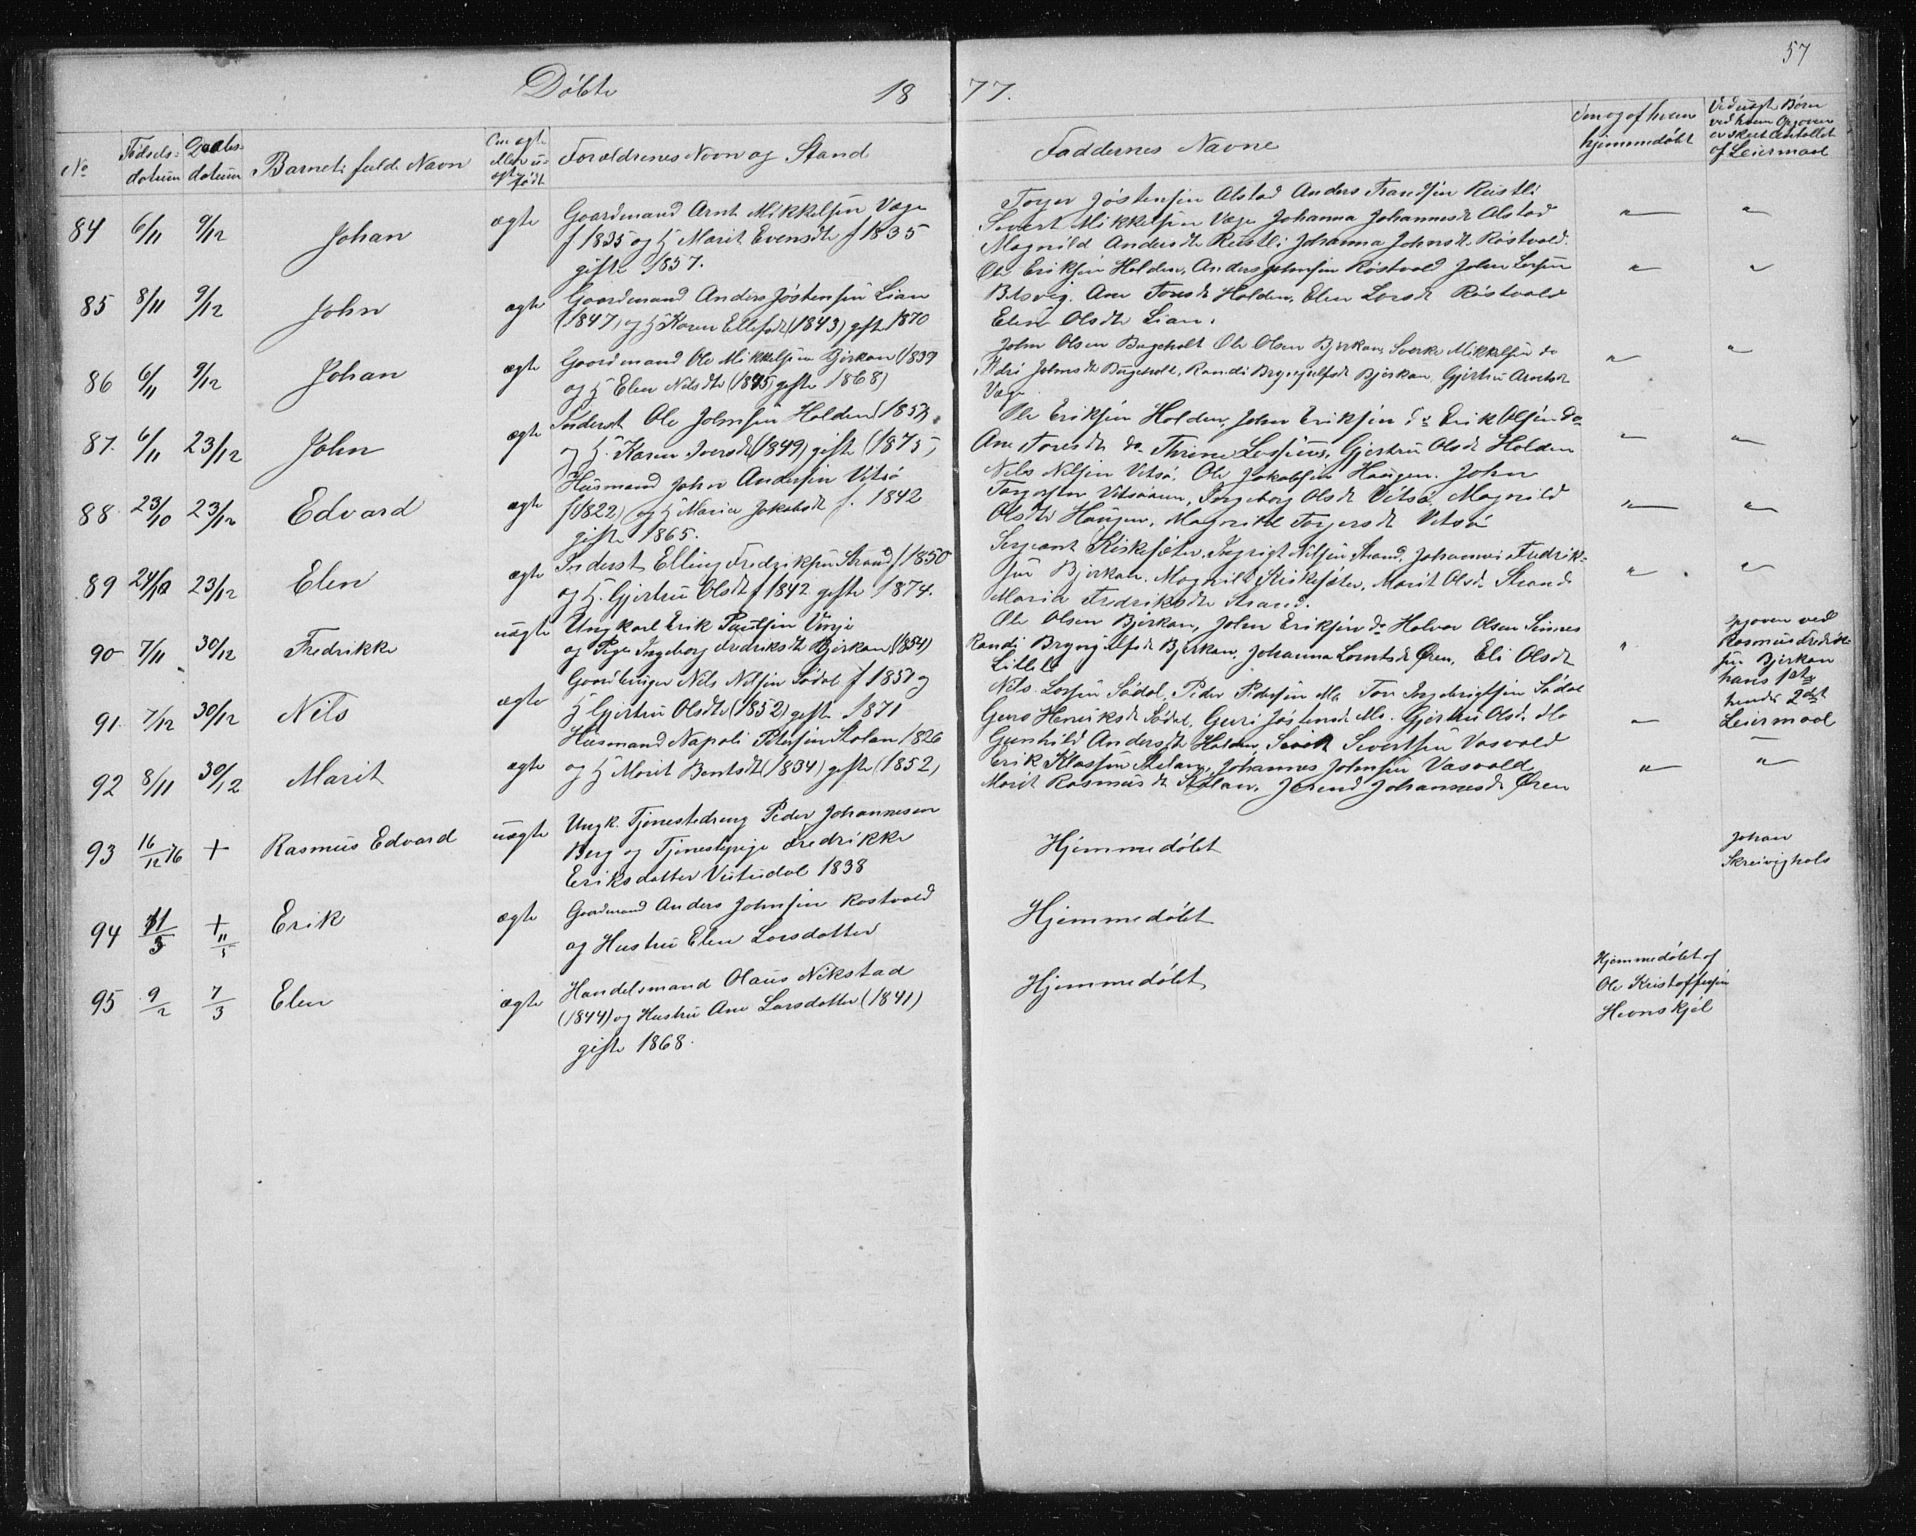 57
Døbte 18 77.
No
Fødsels-
datum
Daabs-
datum
Barnets fulde Navn
Om ægte
eller u-
ægte
født
Forældrenes Navn og Stand
Faddernes Navne
Om og af hvem
hjemmedøbt
Ved uægte Børn
ved hvem Opgaven
er skeet Antallet
af Leiermaal
84 6/11 9/12 Johan ægte
Gaardmand Arnt Mikkelsen Vage
f 1835 og H Marit Evensdtr f 1835
gifte 1857.
Torger Jøstensen Alstad Anders Trandsen Rustli
Sivert Mikkelsen Vage Johanna Johannesdt Alstad
Magnild Andersdtr Rustli Johanna Johnsdt Røstvold.
85 8/11 9/12 John ægte
Gaardmand Anders Jøstensen Lian
(1847) og H Karen Ellefsdt (1843) gifte 1870
Ole Eriksen Holden, Anders Johnsen Røstvold John Larsen
Belsvig. Ane Toresdt Holden, Elen Larsdt Røstvold
Elen Olsdtr Lian.
86 6/11 9/12 Johan ægte
Gaardmand Ole Mikkelsen Bjerkan (1839
og H Elen Nilsdtr (1845) gifte 1868)
John Olsen Bugeholt Ole Olsen Bjerkan, Sverke Mikkelsen do
Johnsdt Bugeholt, Randi Brynjulfsdt Bjerkan, Gjertru Arntsdt
Vage
87. 6/11 23/12 John ægte
Inderst Ole Johnsen Holden (1853)
og H. Karen Iversdt (1849) gifte (1875)
Ole Eriksen Holden, John Eriksen do Erik Olsen do
Ane Toresdt do Thrine Gjertru Olsdt Holden
88. 23/10 23/12 Edvard ægte
Husmand John Andersen Vitsø
f (1822) og H Maria Jakobsdt f. 1842
gifte 1865.
Nils Nilsen Vitsø, Ole Jakobsen Haugen. John
Vitsøaunn, Ingeborg Olsdt Vitsø Magnild
Olsdtr Haugen, Magnild Torgersdt Vitsø
89 24/10 23/12 Elen ægte
Inderst Elling Fredriksen Strand f 1850
og H. Gjertru Olsdt f 1842 gifte 1874.
Sergeant Kirkesæter, Ingrigt Nilsen Strand, Johannes Fredrik-
sen Bjerkan. Magnild Kirkesæter, Marit Olsdt Strand
Maria Fredriksdtr Strand.
90 7/11 30/12 Fredrikke uægte
Ungkarl Erik Paulsen Vinje
og Pige Ingeborg Fredriksdt Bjerkan (1854)
Ole Olsen Bjerkan, John Eriksen do Halvor Olsen Sinnes
Randi Brynjulfsdt Bjerkan, Johanna Larntsdt Øren, Eli Olsdt
Lillelo
Opgaven ved
Rasmus Fredrik-
sen Bjerkan
hans 1ste
hendes 2det
Leiermaal
91. 7/12 30/12 Nils ægte
Gaardbruger Nils Nilsen Sødal f 1851 og
H Gjertru Olsdtr (1852) gifte 1871
Nils Larsen Sødal, Peder Pedersen Mo Tore Ingebrigtsen Sødal
Guro Henriksdt Sødal, Guri Jøstensdt Mo. Gjertru Olsdt Mo
92 8/11 30/12 Marit ægte
Husmand Napoli Petersen Stolan 1826
og H Marit Bentsdt (1834) gifte (1852)
Gunhild Andersdt Holden, Sivert Sivertsen Vasvold
Erik Klassen Stolan, Johannes Johnsen Vasvold
Marit Rasmusdt Stolan, Jorend Johannesdt Øren
93 16/12 76 + Rasmus Edvard uægte
Ungk. Tjenestedreng Peder Johannesen
Berg og Tjenestepige Fredrikke
Eriksdatter Vutudal 1838
Hjemmedøbt
Johan
Skreivighals
94 11/5 + 11/5 Erik ægte
Gaardmand Anders Johnsen Rostvold
og Hustru Elen Larsdatter
Hjemmedøbt
95 9/2 7/3 Elen ægte
Handelsmand Olaus Nikstad
(1844) og Hustru Ane Larsdatter (1841)
gifte 1868.
Hjemmedøbt
Hjemmedøbt af
Ole Kristoffersen
Hevnskjel